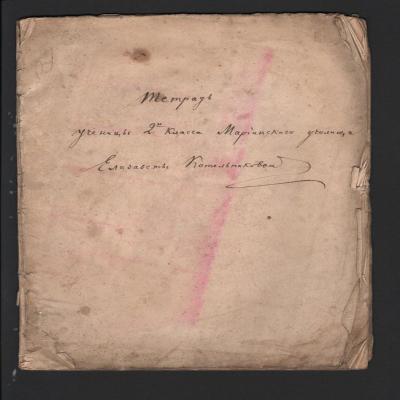 Тетрадь
ученицы 2го класса Марiинскаго училища
Елизаветы Котельниковой